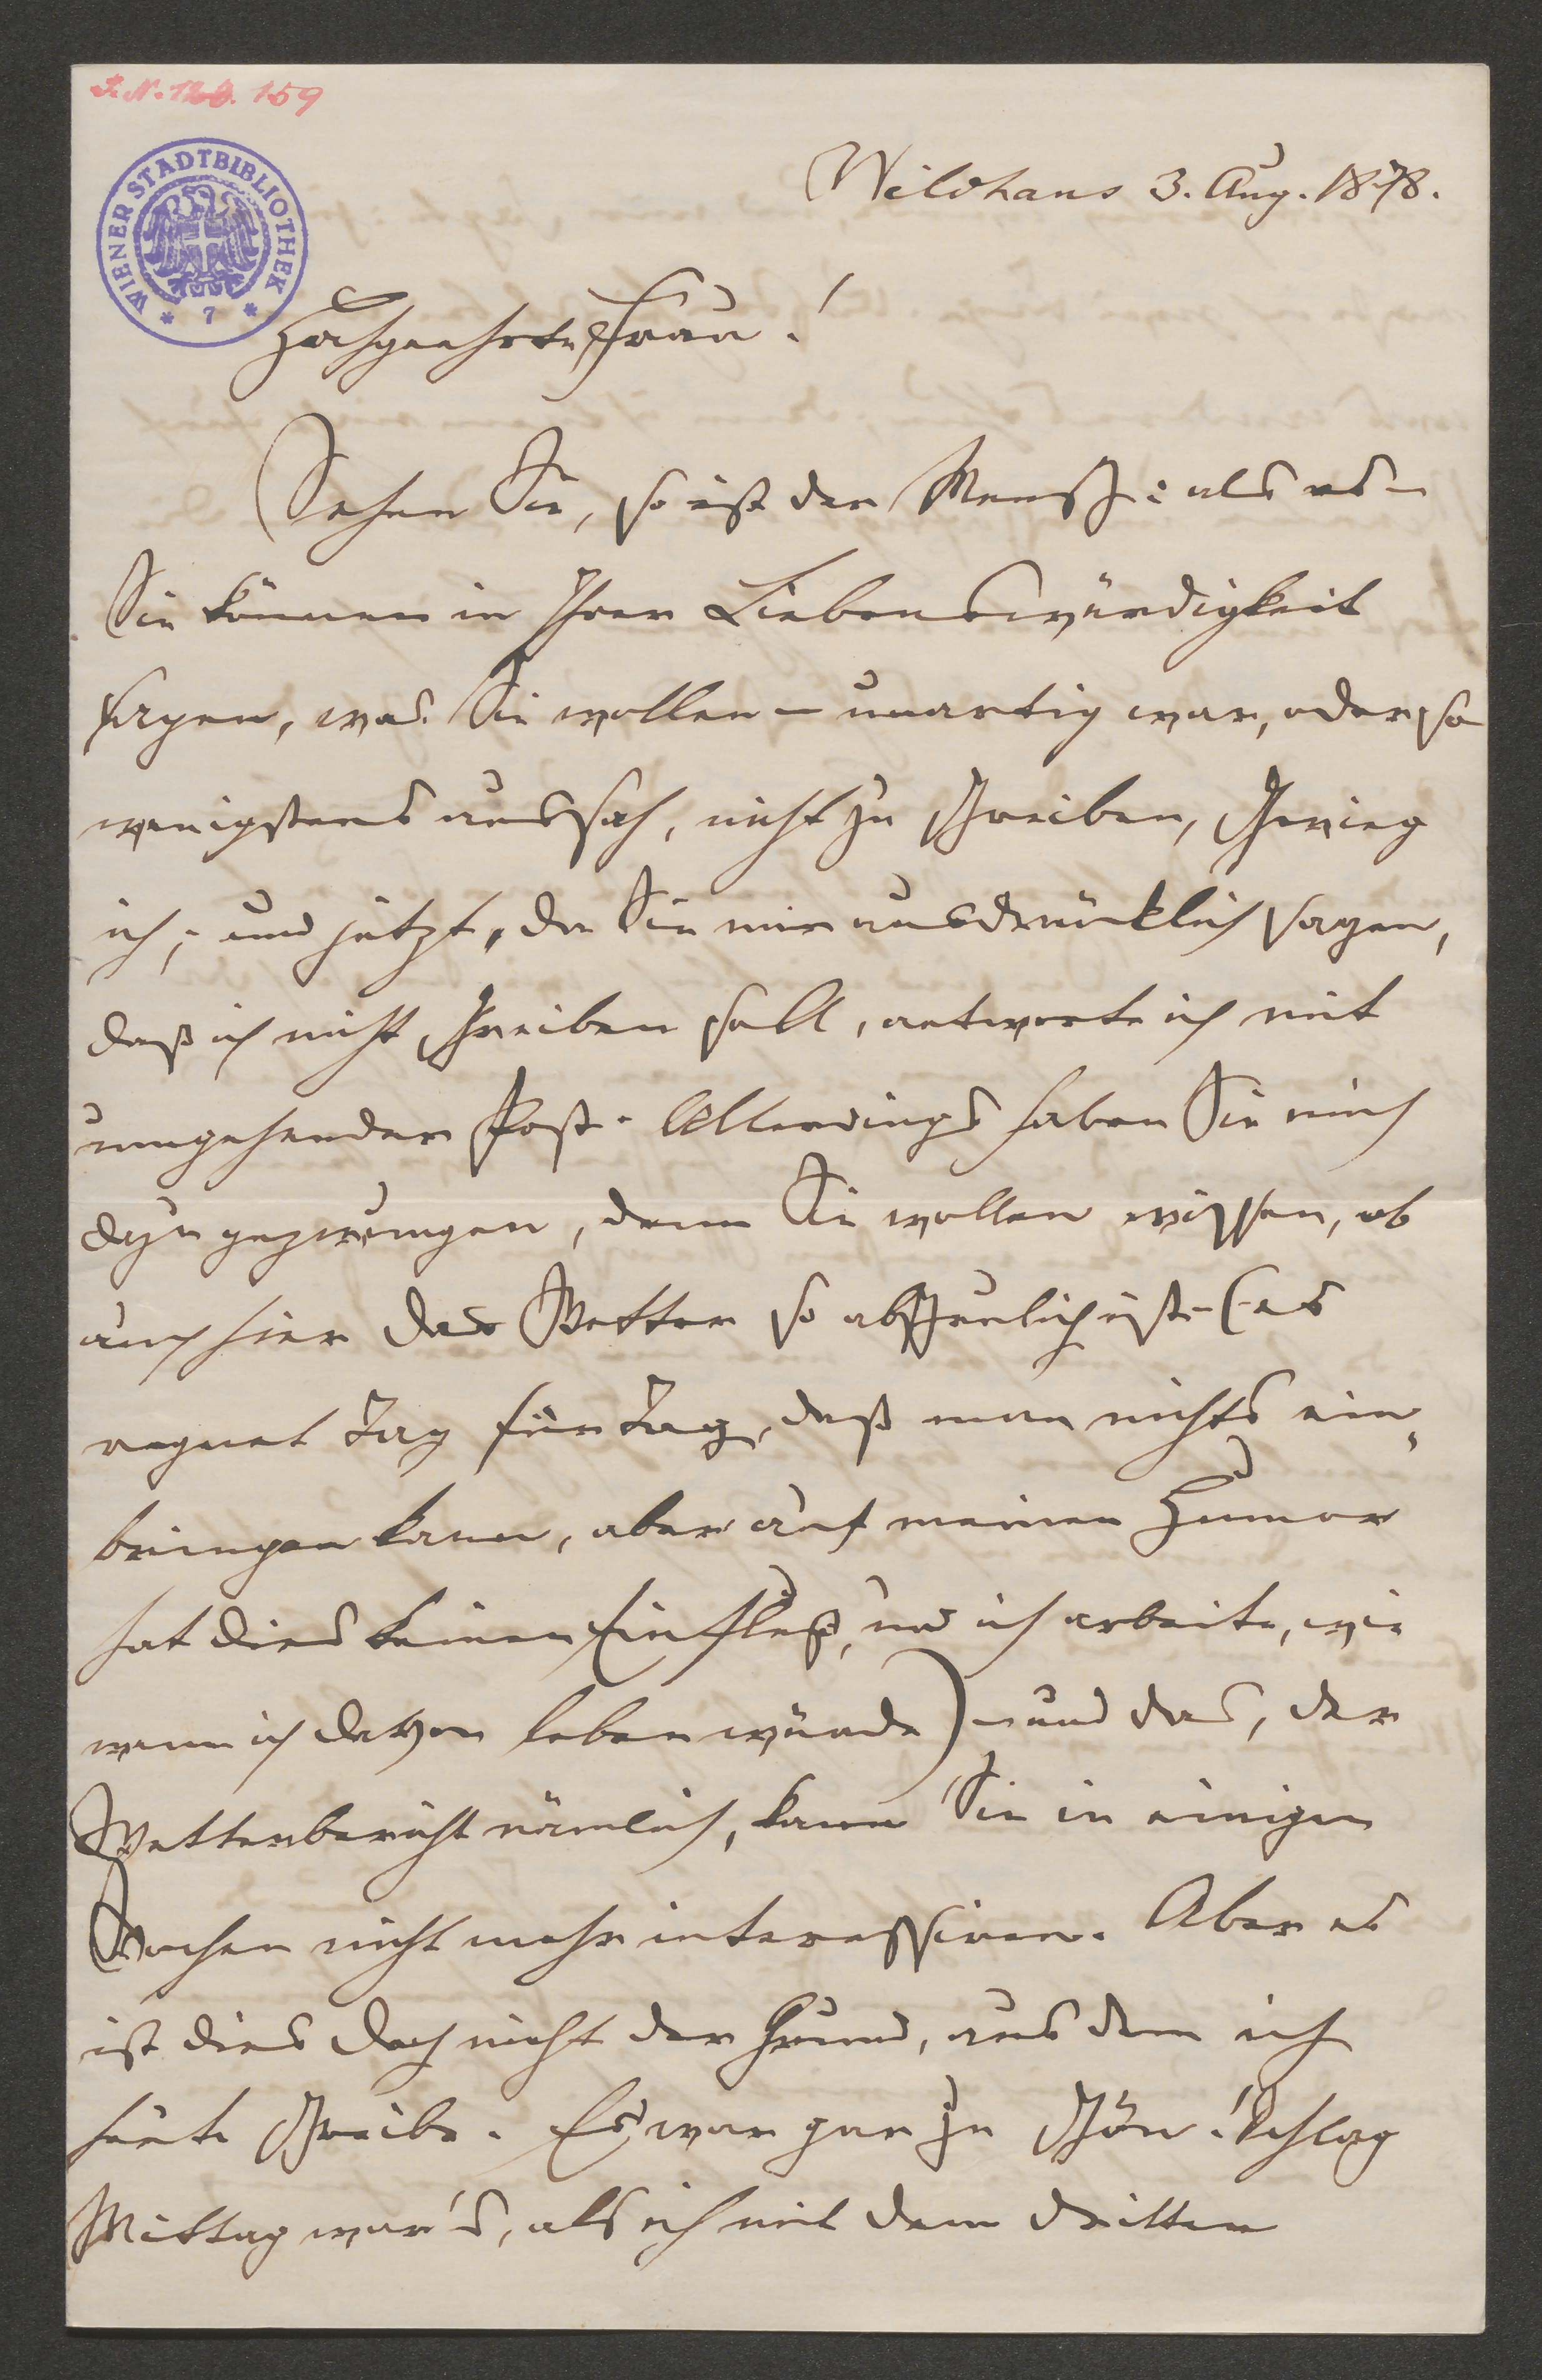 I. N. 120. 159
WIENER STADTBIBLIOTHEK
* 7 *
Wildhaus 3. Aug. 1878.
Hochgeehrte Frau!
Sehen Sie, so ist der Mensch: als es –
Sie können in Ihrer Liebenswürdigkeit
sagen, was Sie wollen – unartig war, oder so
wenigstens aussah, nicht zu schreiben, schwieg
ich; und jetzt, da Sie mir ausdrücklich sagen,
daß ich nicht schreiben soll, antworte ich mit
umgehender Post. Allerdings haben Sie mich
dazu gezwungen, denn Sie wollen wissen, ob
auch hier das Wetter so abscheulich ist – (es
regnet Tag für Tag, daß man nichts ein-
bringen kann, aber auf meinen Humor
hat dies keinen Einfluß, und ich arbeite, wie
wenn ich davon leben würde) – und das, der
Wetterbericht nämlich, kann Sie in einigen
Wochen nicht mehr interessiren. Aber es
ist dies doch nicht der Grund, aus dem ich
heute schreibe. Es war gar zu schön! Schlag
Mittag war's, als ich mit dem dritten